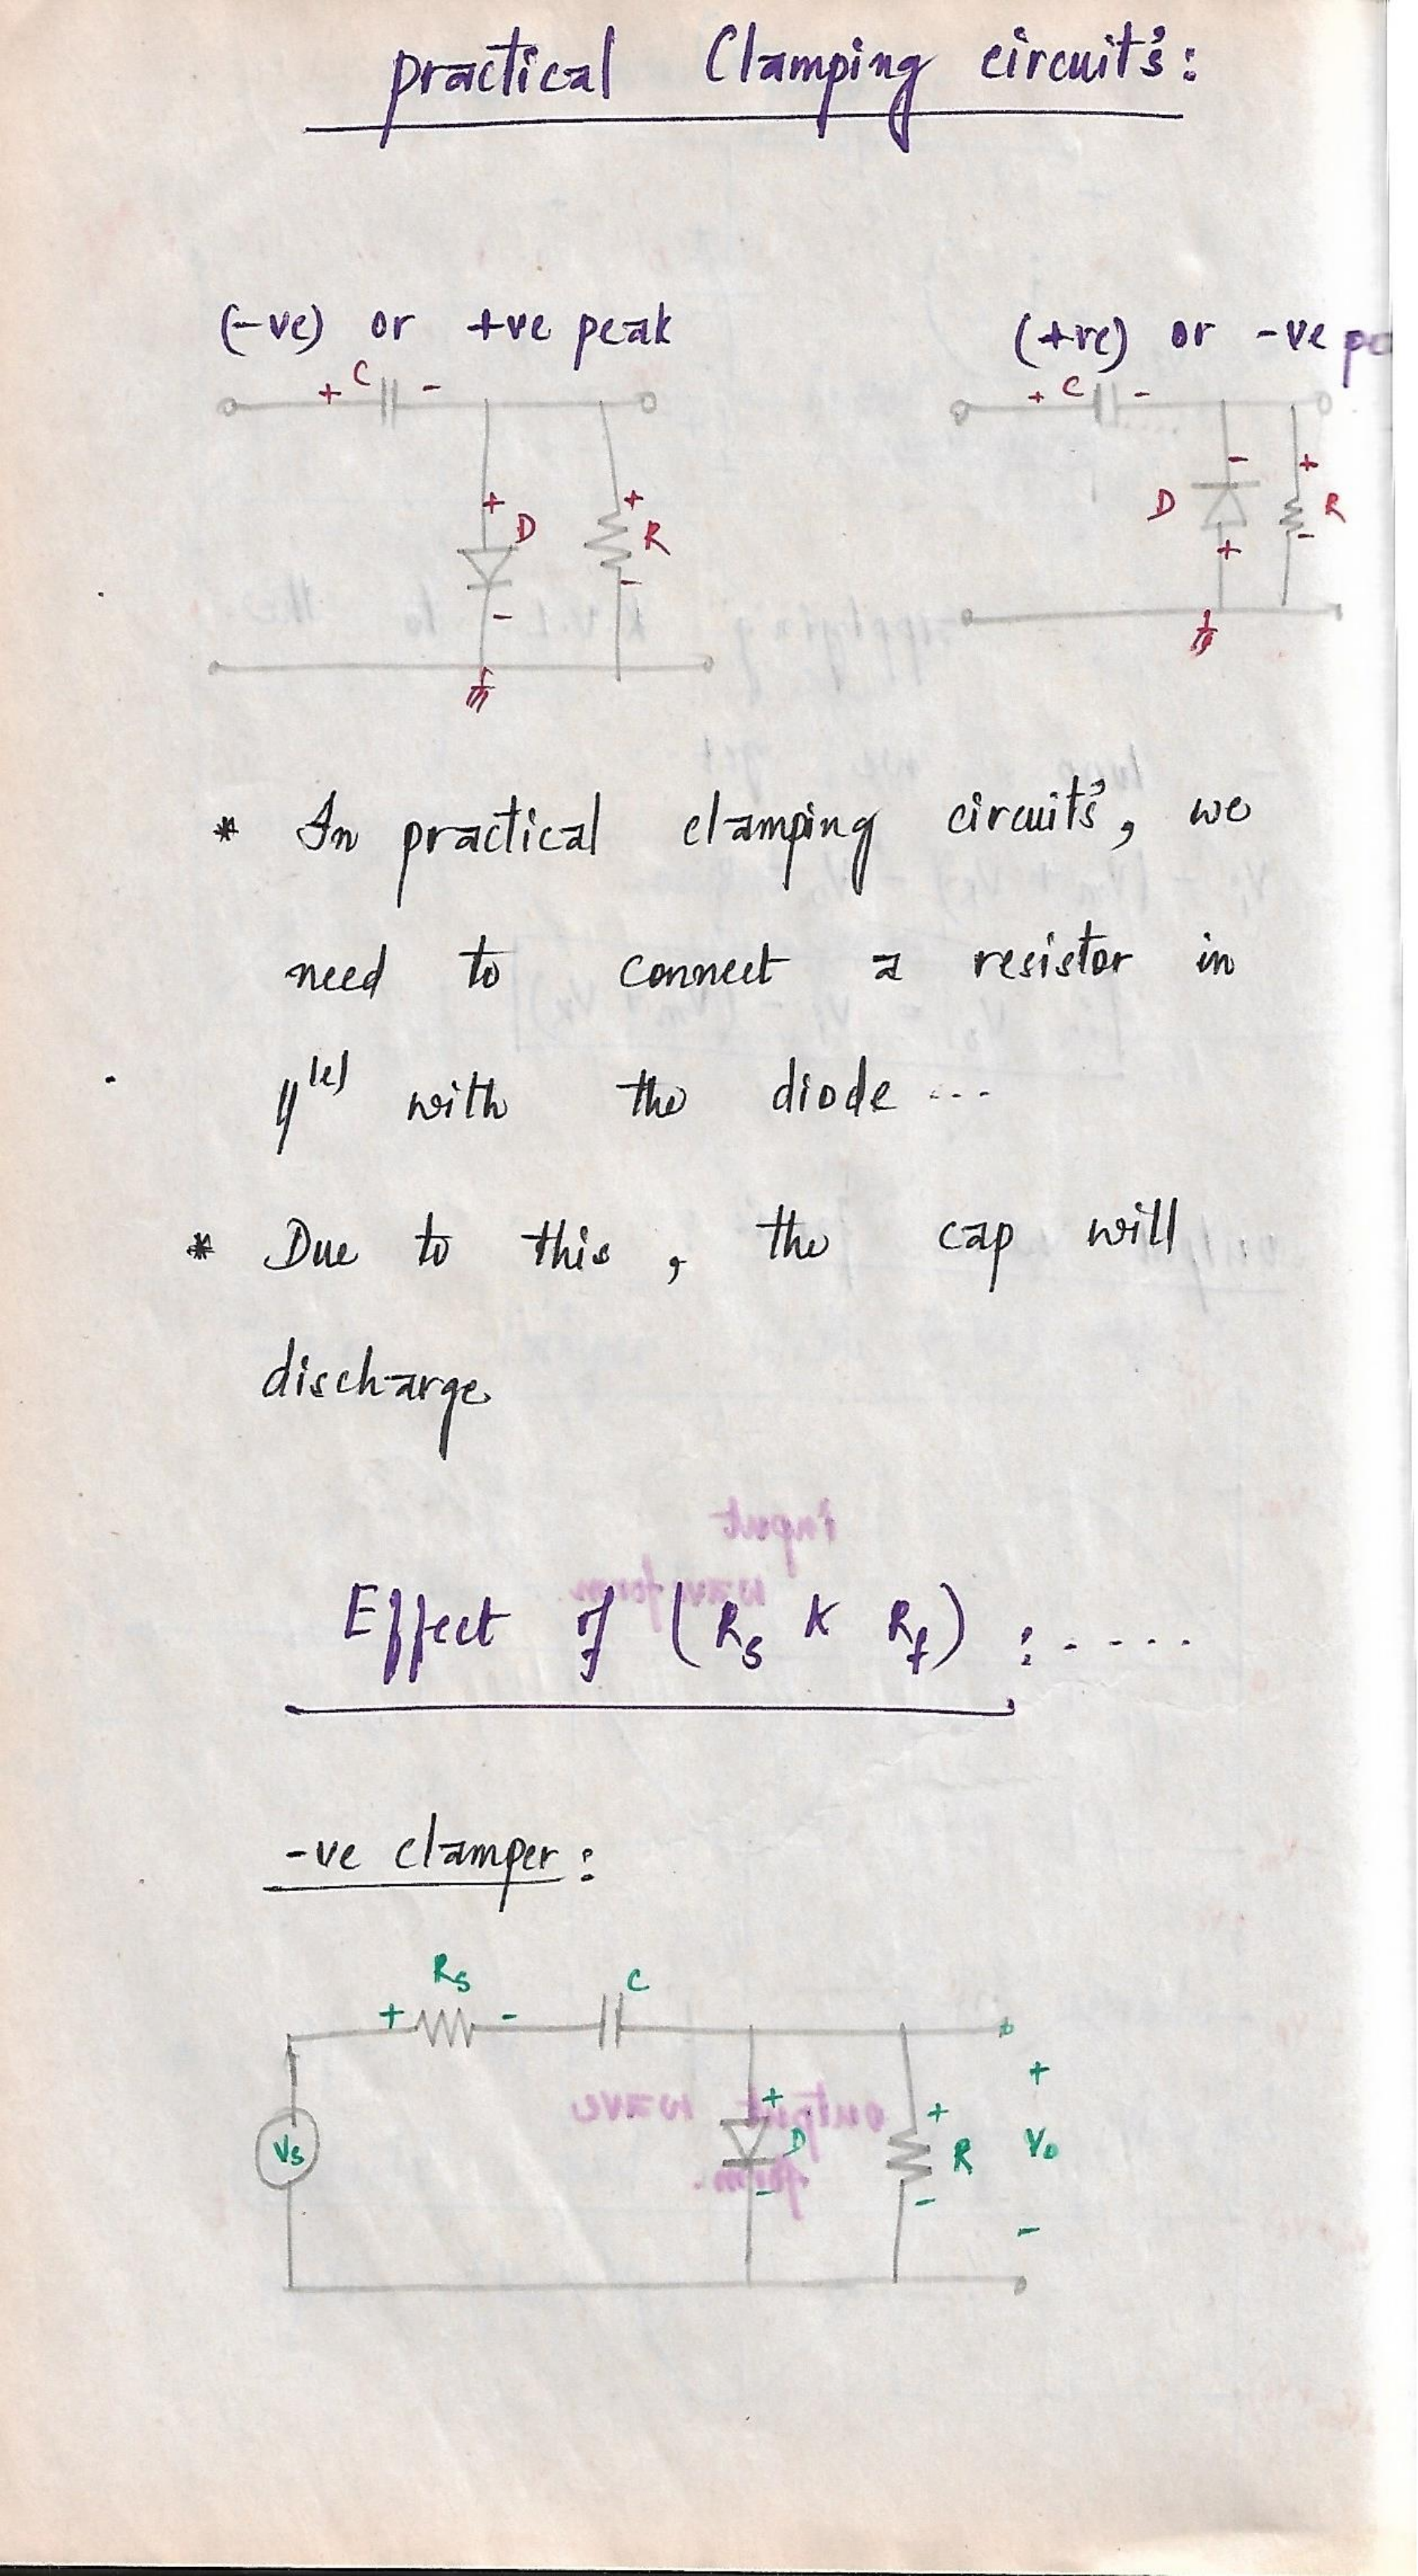 practical Clamping circuit's:
(-ve) or +ve peak
(+ve) or -ve pe
+ C -
+ C -
+ D -
+ R -
- D +
+ R -
* In practical clamping circuit's, we
need to connect a resistor in
||lel with the diode ...
* Due to this, the cap will
discharge
Effect of (Rs & Rf) : .....
-ve clamper:
+ Rs -
C
Vs
+ D -
+ R -
+ Vo -